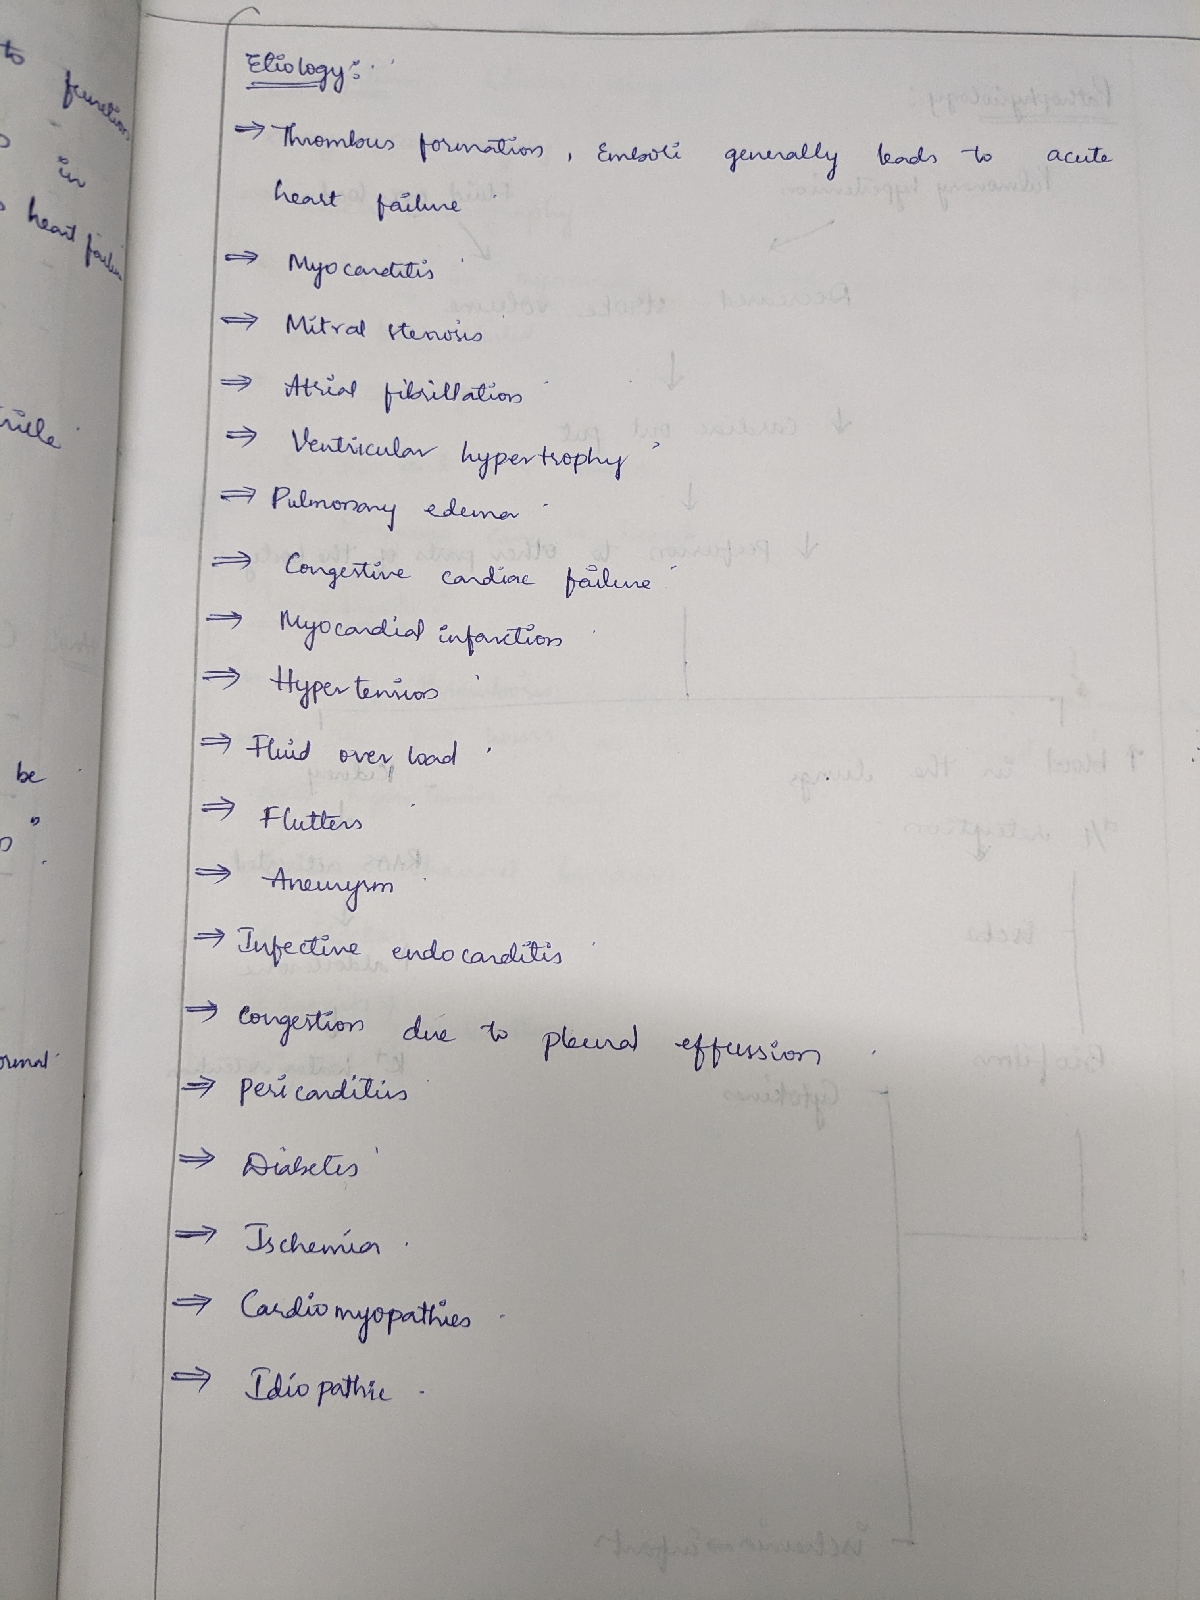 to function
in
heart failure
Etiology:
⇒ Thrombus formation, Emboli generally leads to acute
heart failure
⇒ Myocarditis
⇒ Mitral stenosis
⇒ Atrial fibrillation
⇒ Ventricular hypertrophy
⇒ Pulmonary edema
⇒ Congestive cardiac failure
⇒ Myocardial infarction
⇒ Hypertension
⇒ Fluid over load
⇒ Flutters
⇒ Aneurysm
⇒ Infective endocarditis
⇒ Congestion due to pleural effussion
⇒ Pericarditis
⇒ Diabetes
⇒ Ischemia
⇒ Cardiomyopathies
⇒ Idiopathic
be